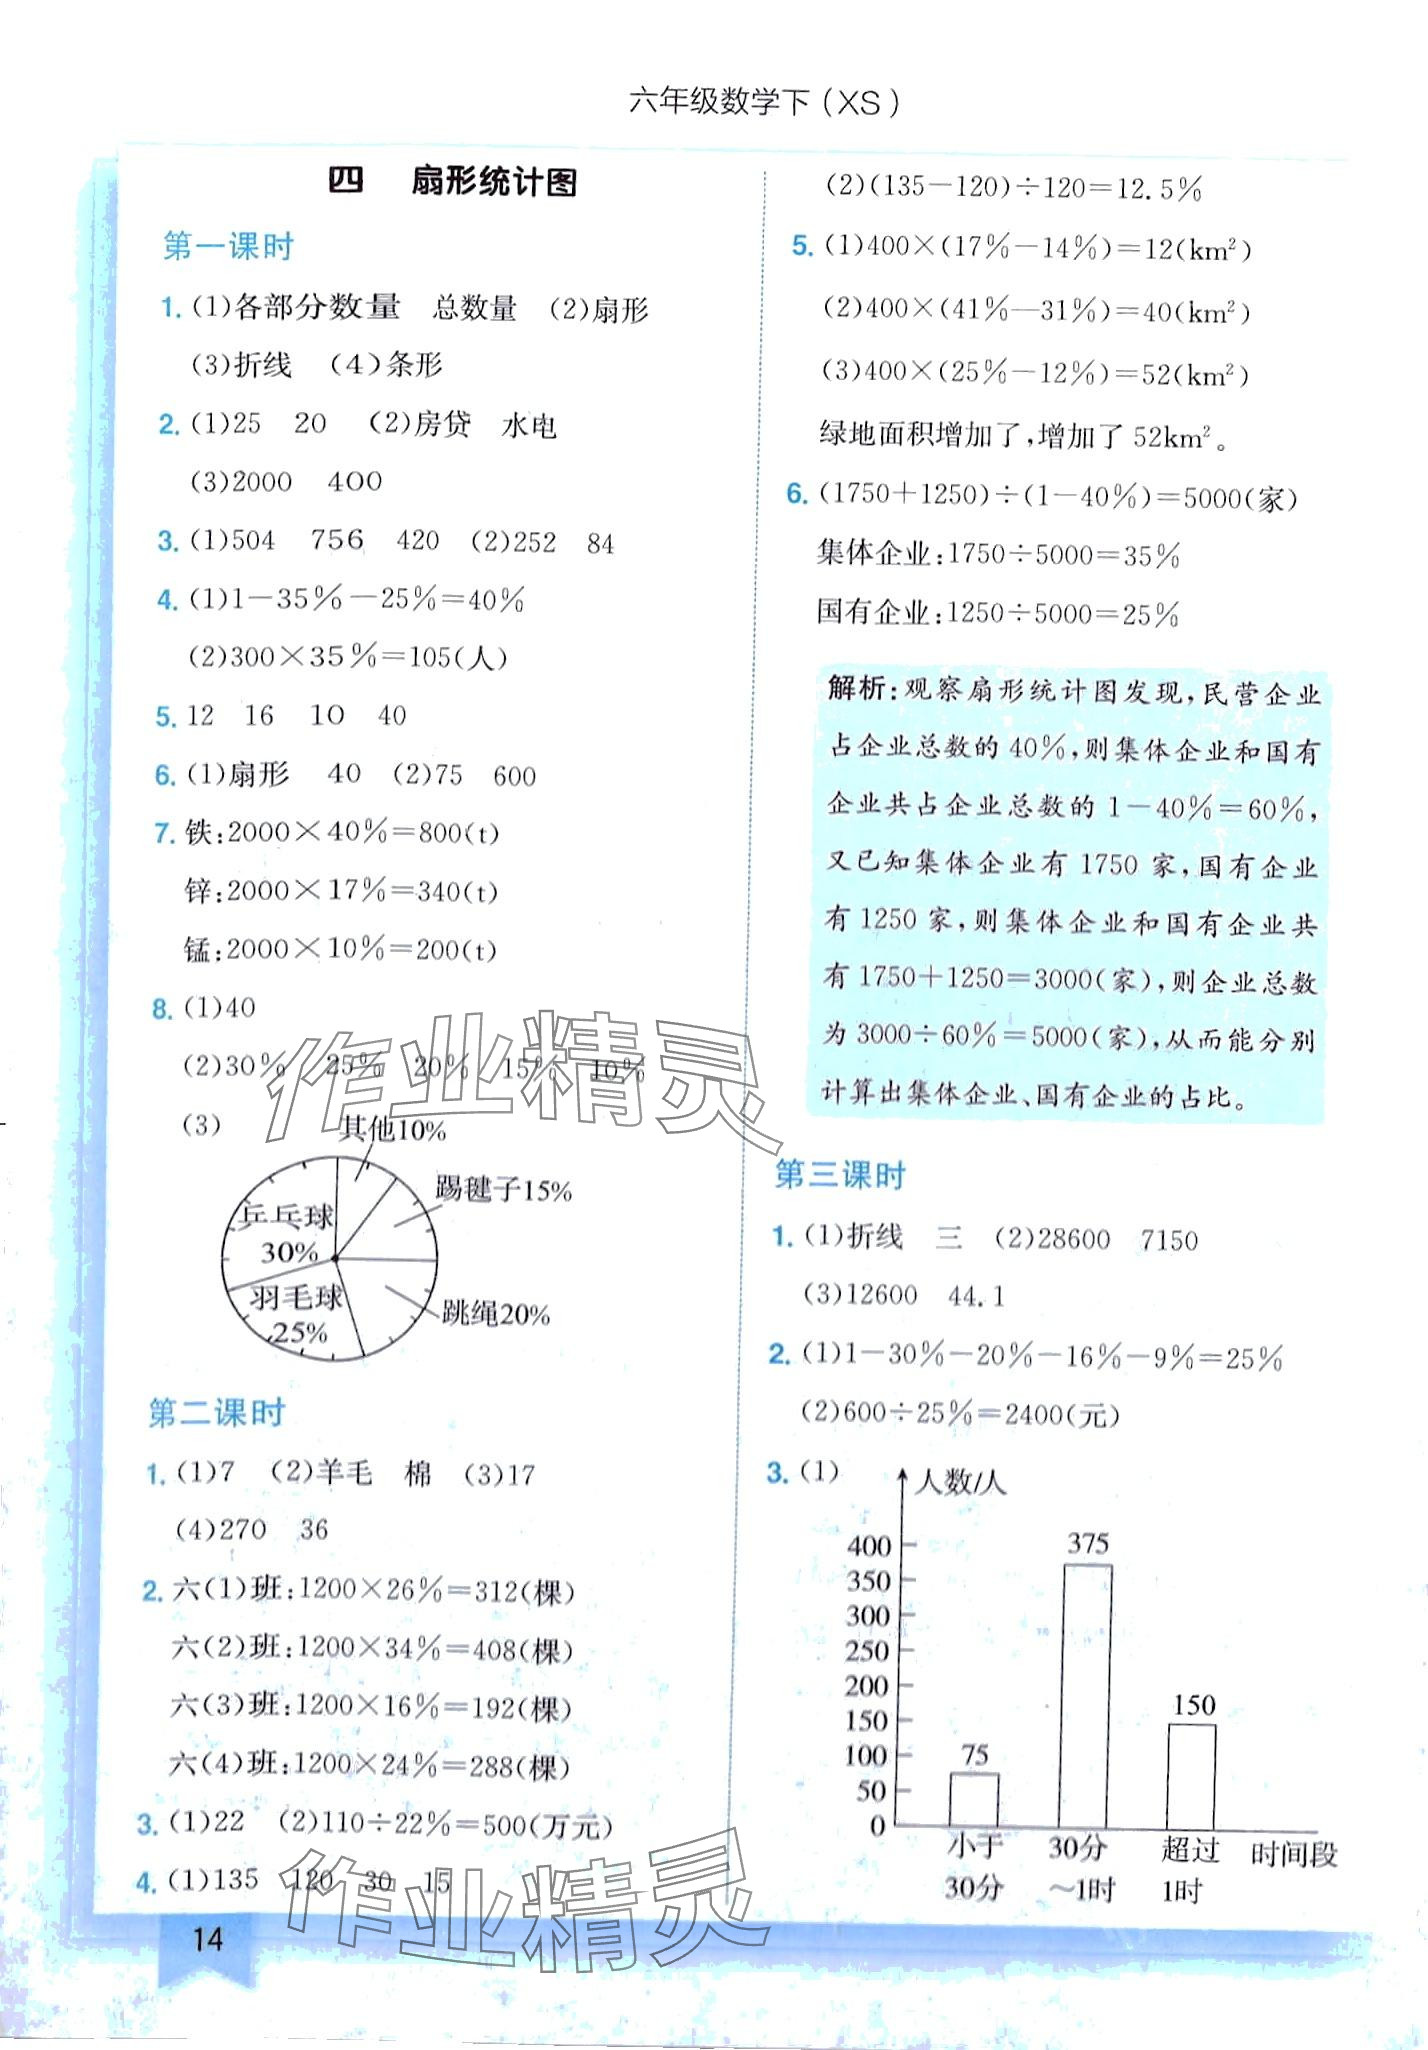 六年级数学下(XS)
四 扇形统计图
第一课时
1. (1)各部分数量 总数量 (2)扇形
(3)折线 (4)条形
2. (1)25 20 (2)房贷 水电
(3)2000 400
3. (1)504 756 420 (2)252 84
4. (1)1－35%－25%＝40%
(2)300×35%＝105(人)
5. 12 16 10 40
6. (1)扇形 40 (2)75 600
7. 铁:2000×40%＝800(t)
锌:2000×17%＝340(t)
锰:2000×10%＝200(t)
8. (1)40
(2)30% 25% 20% 15% 10%
(3)
其他10%
踢毽子15%
乒乓球
30%
羽毛球
25%
跳绳20%
第二课时
1. (1)7 (2)羊毛 棉 (3)17
(4)270 36
2. 六(1)班:1200×26%＝312(棵)
六(2)班:1200×34%＝408(棵)
六(3)班:1200×16%＝192(棵)
六(4)班:1200×24%＝288(棵)
3. (1)22 (2)110÷22%＝500(万元)
4. (1)135 120 30 15
(2)(135－120)÷120＝12.5%
5. (1)400×(17%－14%)＝12(km²)
(2)400×(41%—31%)＝40(km²)
(3)400×(25%－12%)＝52(km²)
绿地面积增加了,增加了52km²。
6. (1750＋1250)÷(1－40%)＝5000(家)
集体企业:1750÷5000＝35%
国有企业:1250÷5000＝25%
解析:观察扇形统计图发现,民营企业
占企业总数的40%,则集体企业和国有
企业共占企业总数的1－40%＝60%,
又已知集体企业有1750家,国有企业
有1250家,则集体企业和国有企业共
有1750＋1250＝3000(家),则企业总数
为3000÷60%＝5000(家),从而能分别
计算出集体企业、国有企业的占比。
第三课时
1. (1)折线 三 (2)28600 7150
(3)12600 44.1
2. (1)1－30%－20%－16%－9%＝25%
(2)600÷25%＝2400(元)
3. (1)
人数/人
400
350
300
250
200
150
100
50
0
75
375
150
小于 30分 超过 时间段
30分 ～1时 1时
14
作业精灵
作业精灵